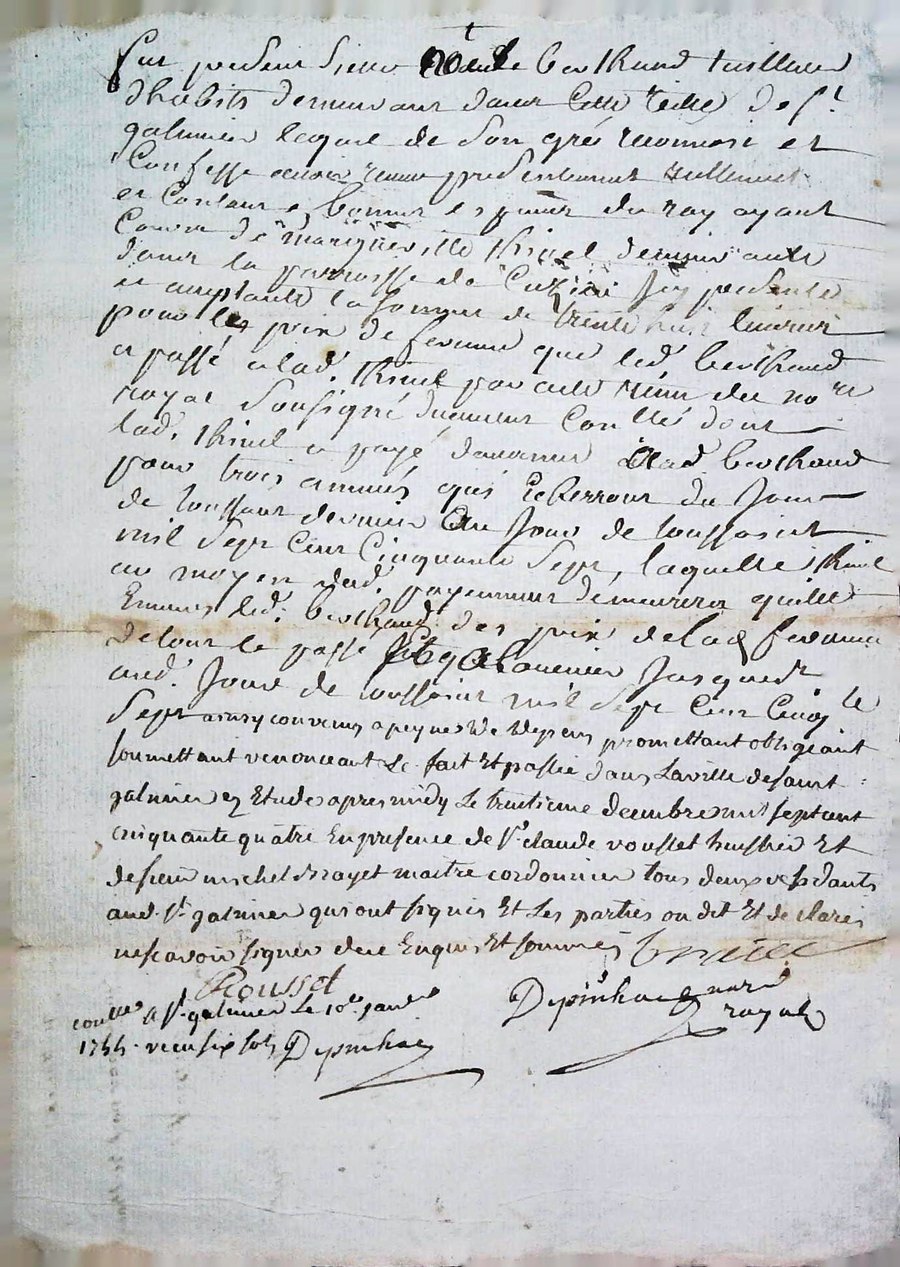 fut present Sieur berthaud tailleur
dhabits demeurant dans Cette ville de St
galmier lequel de son gré reconnoit et
Confesse avoir receu presentement reellement
et Contant en bonnes espèces du roy ayant
Cours de margueritte thivel demeurante
dans la parroisse de Cuzieu Icy presente
et acceptante la somme de trente huit livres
pour le prix de ferme que led. berthaud
a passé a lad. thivel par acte receu du nore
royal soussigné duement Conllé dont
lad. thivel a payé davance aud. berthaud
pour trois années qui Echerront du Jour
de toussaint dernier au Jour de toussaint
mil sept Cent Cinquante sept, laquelle thivel
au moyen dud. payement demeurera quitte
Envers led. berthaud des prix de lad ferme
de tout le passé et a lavenir Jusques
aud. Jour de toussaint mil sept Cent Cinq te
sept ainsy convenu a peynes de depens promettant obligeant
soumettant renonceant &c. fait Et passé dans La ville de saint
galmier Etude apres midy Le trentieme decembre mil sept cent
cinquante quatre En presence de Sr. claude rousset huissier Et
de sieur michel brayet maitre cordonnier tous deux residants
aud. St. galmier qui ont signés Et Les parties on dit Et declarés
ne scavoir signer de ce Enquis Et sommés brayet
Rousset
conllé A St. galmier Le 10e. janvier Depinhac nore
1755. receu six sols Depinhac royal